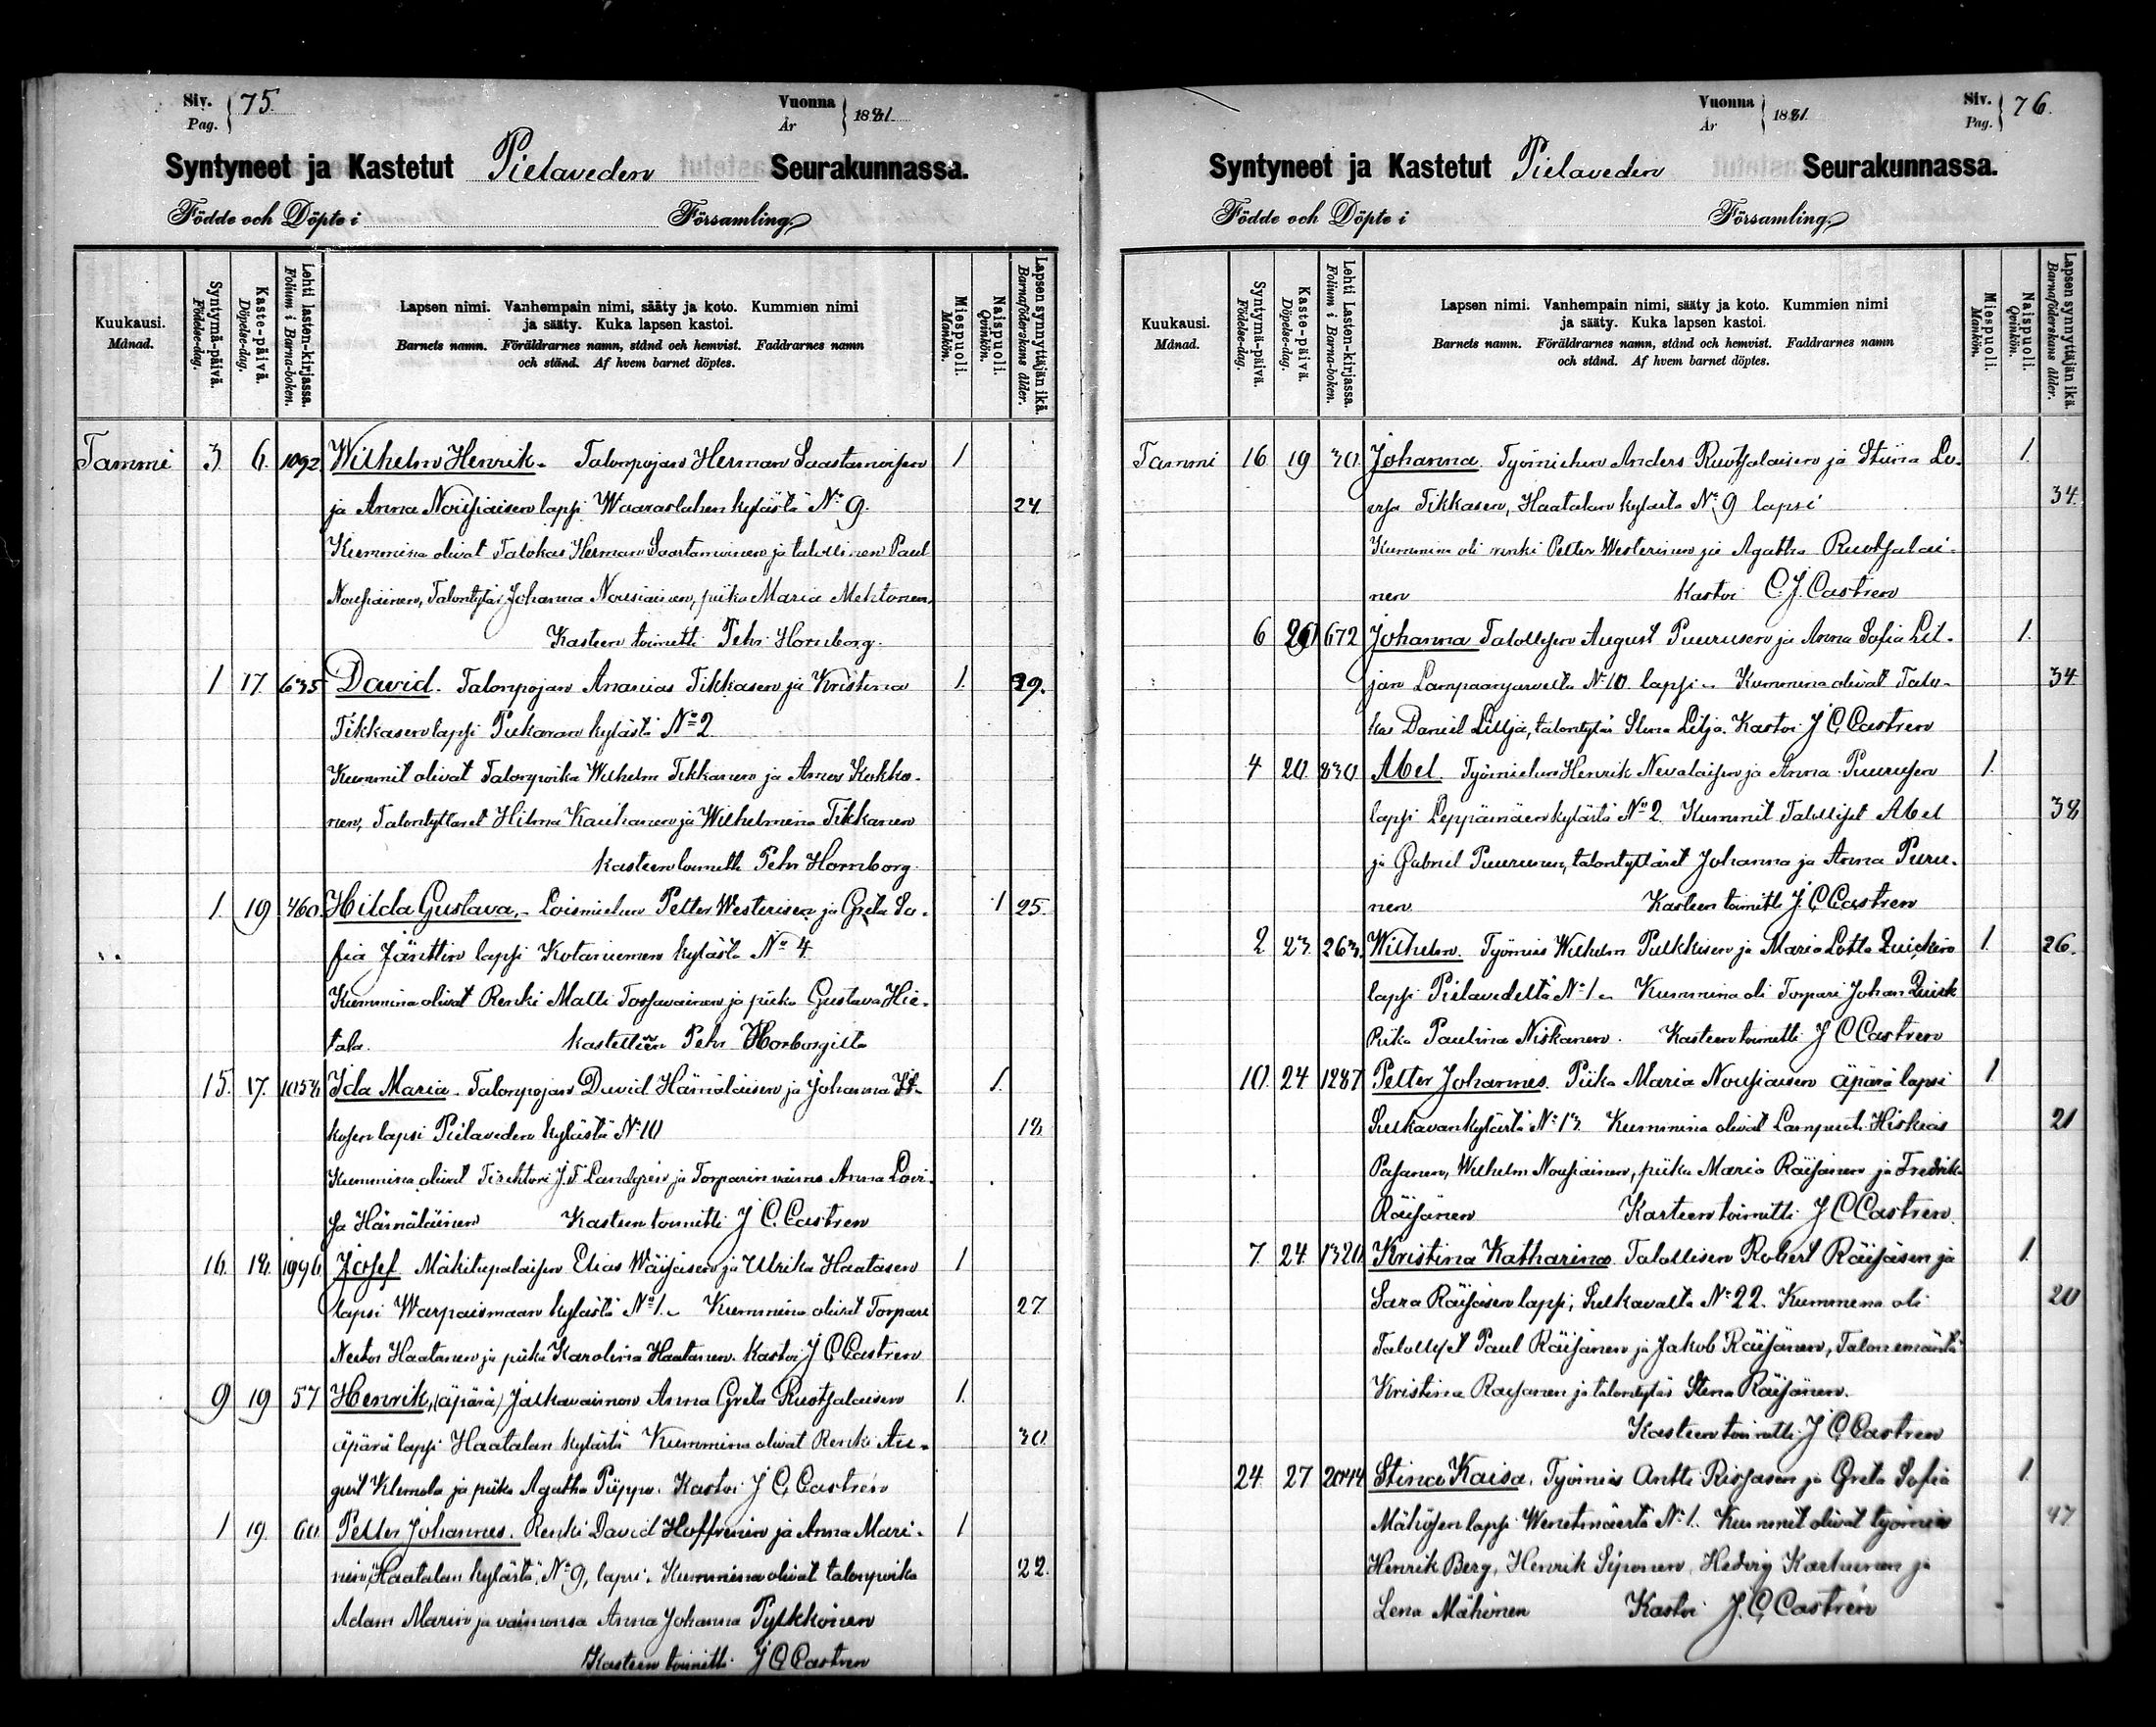 Siv. Pag. 75. Vuonna År 1881.
Syntyneet ja Kastetut Pielaveden Seurakunnassa.
Födde och Döpte i Församling.
Kuukausi. Månad. Syntymä-päivä. Födelse-dag. Kaste-päivä. Döpelse-dag. Lehti lasten-kirjassa. Folium i Barna-boken. Lapsen nimi. Vanhempain nimi, sääty ja koto. Kummien nimi ja sääty. Kuka lapsen kastoi. Barnets namn. Föräldrarnes namn, stånd och hemvist. Faddrarnes namn och stånd. Af hvem barnet döptes. Miespuoli. Mankön. Naispuoli. Qvinkön. Lapsen synnyttäjän ikä. Barnaföderskans ålder.
Tammi 3 6. 1092 Wilhelm Henrik. Talonpojan Herman Saastamoisen 1
ja Anna Nousiaisen lapsi Waaraslahen kylästä No 9. 24.
Kummina olivat Talokas Herman Saastamoinen ja talollinen Paul
Nousiainen, Talontytär Johanna Nousiainen, piika Maria Mehtonen.
Kasteen toimitti Pehr Hornborg.
1 17 635 David. Talonpojan Ananias Tikkasen ja Kristina 1. 29.
Tikkasen lapsi No 2
Kummit olivat Talonpoika Wilhelm Tikkanen ja Amos Kokko-
nen, Talontyttäret Hilma Kauhanen ja Wilhelmina Tikkanen
Kasteen toimitti Pehr Hornborg.
1. 19 460. Hilda Gustava. Loismiehen Petter Westerisen ja Greta So- 1 25.
fia Jänttin lapsi Kotaniemen kylästä No 4
Kummina olivat Renki Matti Torvainen ja piika Gustava Hie-
tala. Pehr Hornborgilta
15. 17. 1058 Ida Maria. Talonpojan David Hämäläisen ja Johanna 1.
lapsi Pielaveden kylästä No 10 18.
Kummina olivat J. F. Landgren ja Torparin vaimo Anna Lovi-
sa Hämäläinen Kasteen toimitti J C. Castren
16. 18. 1996 Josef. Mäkitupalaisen Elias Wäisäisen ja Ulrika Haatasen 1
lapsi Warpaismaan kylästä No 1. Kummina olivat Torpari
Nestor Haatanen ja piika Karolina Haatanen. Kastoi J C Castren
9 19 57 Henrik, (äpärä) Jalkavaimon Anna Greta Ruotsalaisen 1.
äpärä lapsi Haatalan kylästä Kummina olivat Renki Au- 30
gust Klemola ja piika Agatha Piippo. Kastoi J C, Castrén
1 19. 60. Petter Johannes. Renki David Hoffrenin ja Anna Mari- 1
nin, Haatalan kylästä, No 9, lapsi. Kummina olivat talonpoika 22.
Adam Marin ja vaimonsa Anna Johanna Pylkkönen
Kasteen toimitti J C, Castren
Vuonna År 1881. Siv. Pag. 76.
Syntyneet ja Kastetut Pielaveden Seurakunnassa.
Födde och Döpte i Församling.
Kuukausi. Månad. Syntymä-päivä. Födelse-dag. Kaste-päivä. Döpelse-dag. Lehti Lasten-kirjassa. Folium i Barna-boken. Lapsen nimi. Vanhempain nimi, sääty ja koto. Kummien nimi ja sääty. Kuka lapsen kastoi. Barnets namn. Föräldrarnes namn, stånd och hemvist. Faddrarnes namn och stånd. Af hvem barnet döptes. Miespuoli. Mankön. Naispuoli. Qvinkön. Lapsen synnyttäjän ikä. Barnaföderskans ålder.
Tammi 16 19 30. Johanna. Työmiehen Anders Ruotsalaisen ja Stiina Lo- 1.
visa Tikkasen, Haatalan kylästä No 9 lapsi 34.
Kummina oli renki Petter Westerinen ja Agatha Ruotsalai-
nen Kastoi C. J. Castren
6 20 672 Johanna Talollisen August Puurusen ja Anna Sofia Lil- 1.
jan Lampaanjarvelta No 10. lapsi. Kummina olivat Talo- 34
kas Daniel Lilja, talontytär Stina Lilja. Kastoi J C, Castren
4 20. 830 Abel. Työmiehen Henrik Nevalaisen ja Anna Puurusen 1.
lapsi Leppämäen kylästä No 2. Kummit Talolliset Abel 38
ja Gabriel Puurunen, talontyttäret Johanna ja Anna Puru-
nen Kasteen toimitti J. C, Castren
2 23. 263. Wilhelm. Työmies Wilhelm Pulkkisen ja Maria Lotta Quickin 1. 26.
lapsi Pielavedeltä No 1. Kummina oli Torpari Johan Quick
Piika Paulina Niskanen. Kasteen toimitti J C Castren
10. 24 1287 Petter Johannes. Piika Maria Nousiaisen äpärä lapsi 1
Sulkavan kylästä No 13. Kummina olivat Lampuoti Hiskias 21
Pasanen, Wilhelm Nousiainen, piika Maria Räisänen ja Fredrika
Räisänen Kasteen toimitti J C Castren.
7. 24. 1320 Kristina Katharina. Talollisen Robert Räisäsen ja 1.
Sara Räisäsen lapsi, Sulkavalta No 22. Kummina oli 20
Talolliset Paul Räisänen ja Jakob Räisänen, Talonemäntä
Kristina Räisänen ja talontytär Stina Räisänen.
Kasteen toimitti J C, Castren
24. 27 2044 Stina Kaisa. Työmies Antti Rissasen ja Greta Sofia 1.
Mähösen lapsi Wenetmäestä No 1. Kummit olivat työmies 47.
Henrik Berg, Henrik Siponen, Hedvig Karhunen ja
Lena Mähönen Kastoi J. C, Castrén